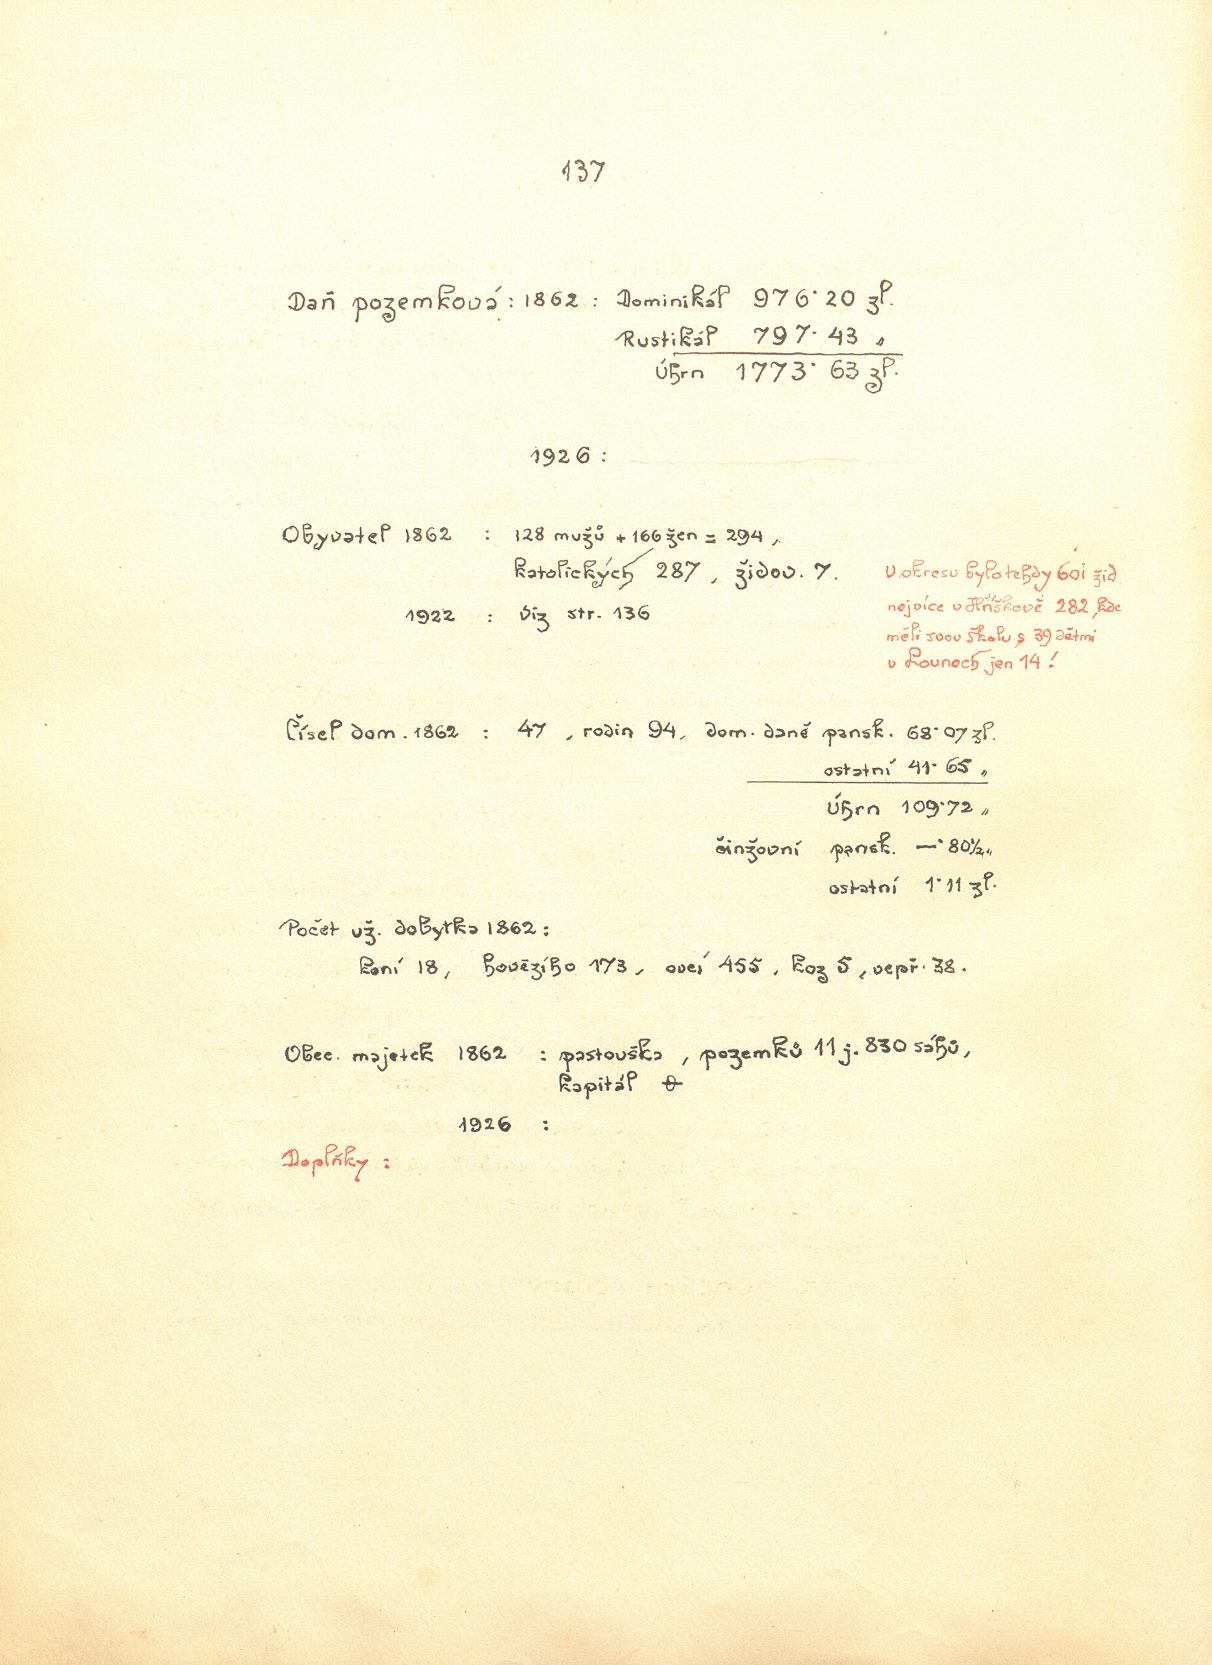 137
Daň pozemková : 1862 : Dominikál 976·20 zl.
Rustikál 797·43 „
Úhrn 1773·63 zl.
1926 :
Obyvatel 1862 : 128 mužů + 166 žen = 294,
katolických 287, židov. 7.
1922 : Viz str. 136
V okresu bylo tehdy 601 žid
nejvíce v Hříškově 282, kde
měli svou školu s 39 dětmi
v Lounech jen 14!
Čísel dom. 1862 : 47, rodin 94, dom. daně pansk. 68·07 zl.
ostatní 41·65 „
Úhrn 109·72 „
činžovní pansk. —·80½ „
ostatní 1·11 zl.
Počet už. dobytka 1862 :
koní 18, hovězího 173, ovcí 455, koz 5, vepř. 38.
Obec. majetek 1862 : pastouška, pozemků 11 j. 830 sáhů,
kapitál
1926 :
Doplňky :